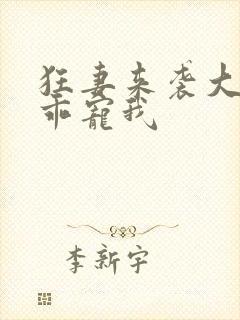 狂妻来袭大
乖宠我
李新宇